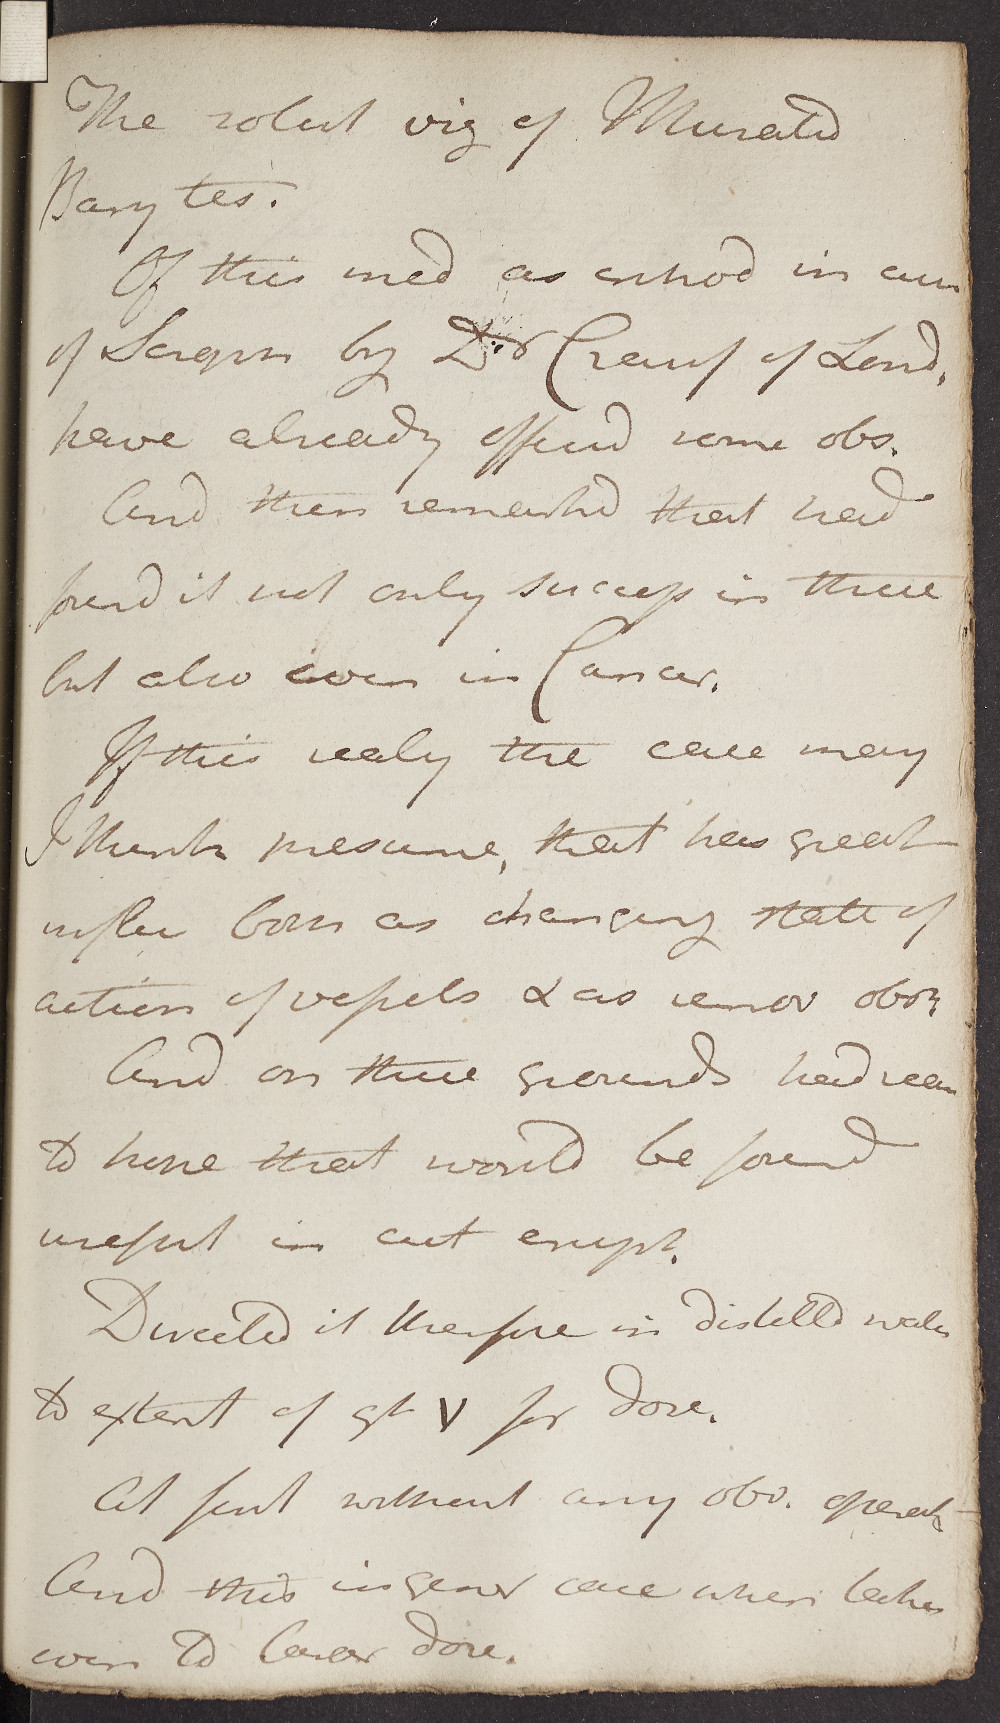 The solut viz of Muriatd
Barytes.
Of this med as introd in cure
of by Dr Crauf of Lond,
have already offerd some obs.
And then remarkd that had
found it not only succesſ in these
but also even in Cancer.
If this realy the case may
I think presume, that has great
influ both as changing state of
action of veſsels & as remov obstr
And on these grounds had reas
to hope that would be found
useful in cut erupt.
Directed it therefore in distilld water
to extent of gt V for dose.
At first without any obv. operat
And this in gener case when taken
even to larger dose.